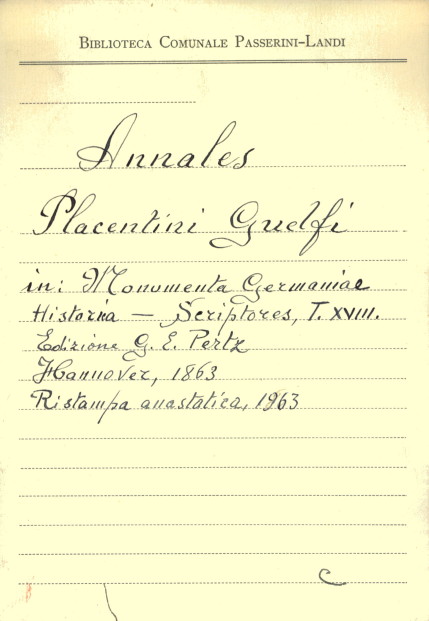 BIBLIOTECA COMUNALE PASSERINI-LANDI
Annales
Placentini Guelfi
in: Monumenta Germaniae
Historia — Scriptores, T. XVIII.
Edizione G. E. Pertz
Hannover, 1863
Ristampa anastatica, 1963
C